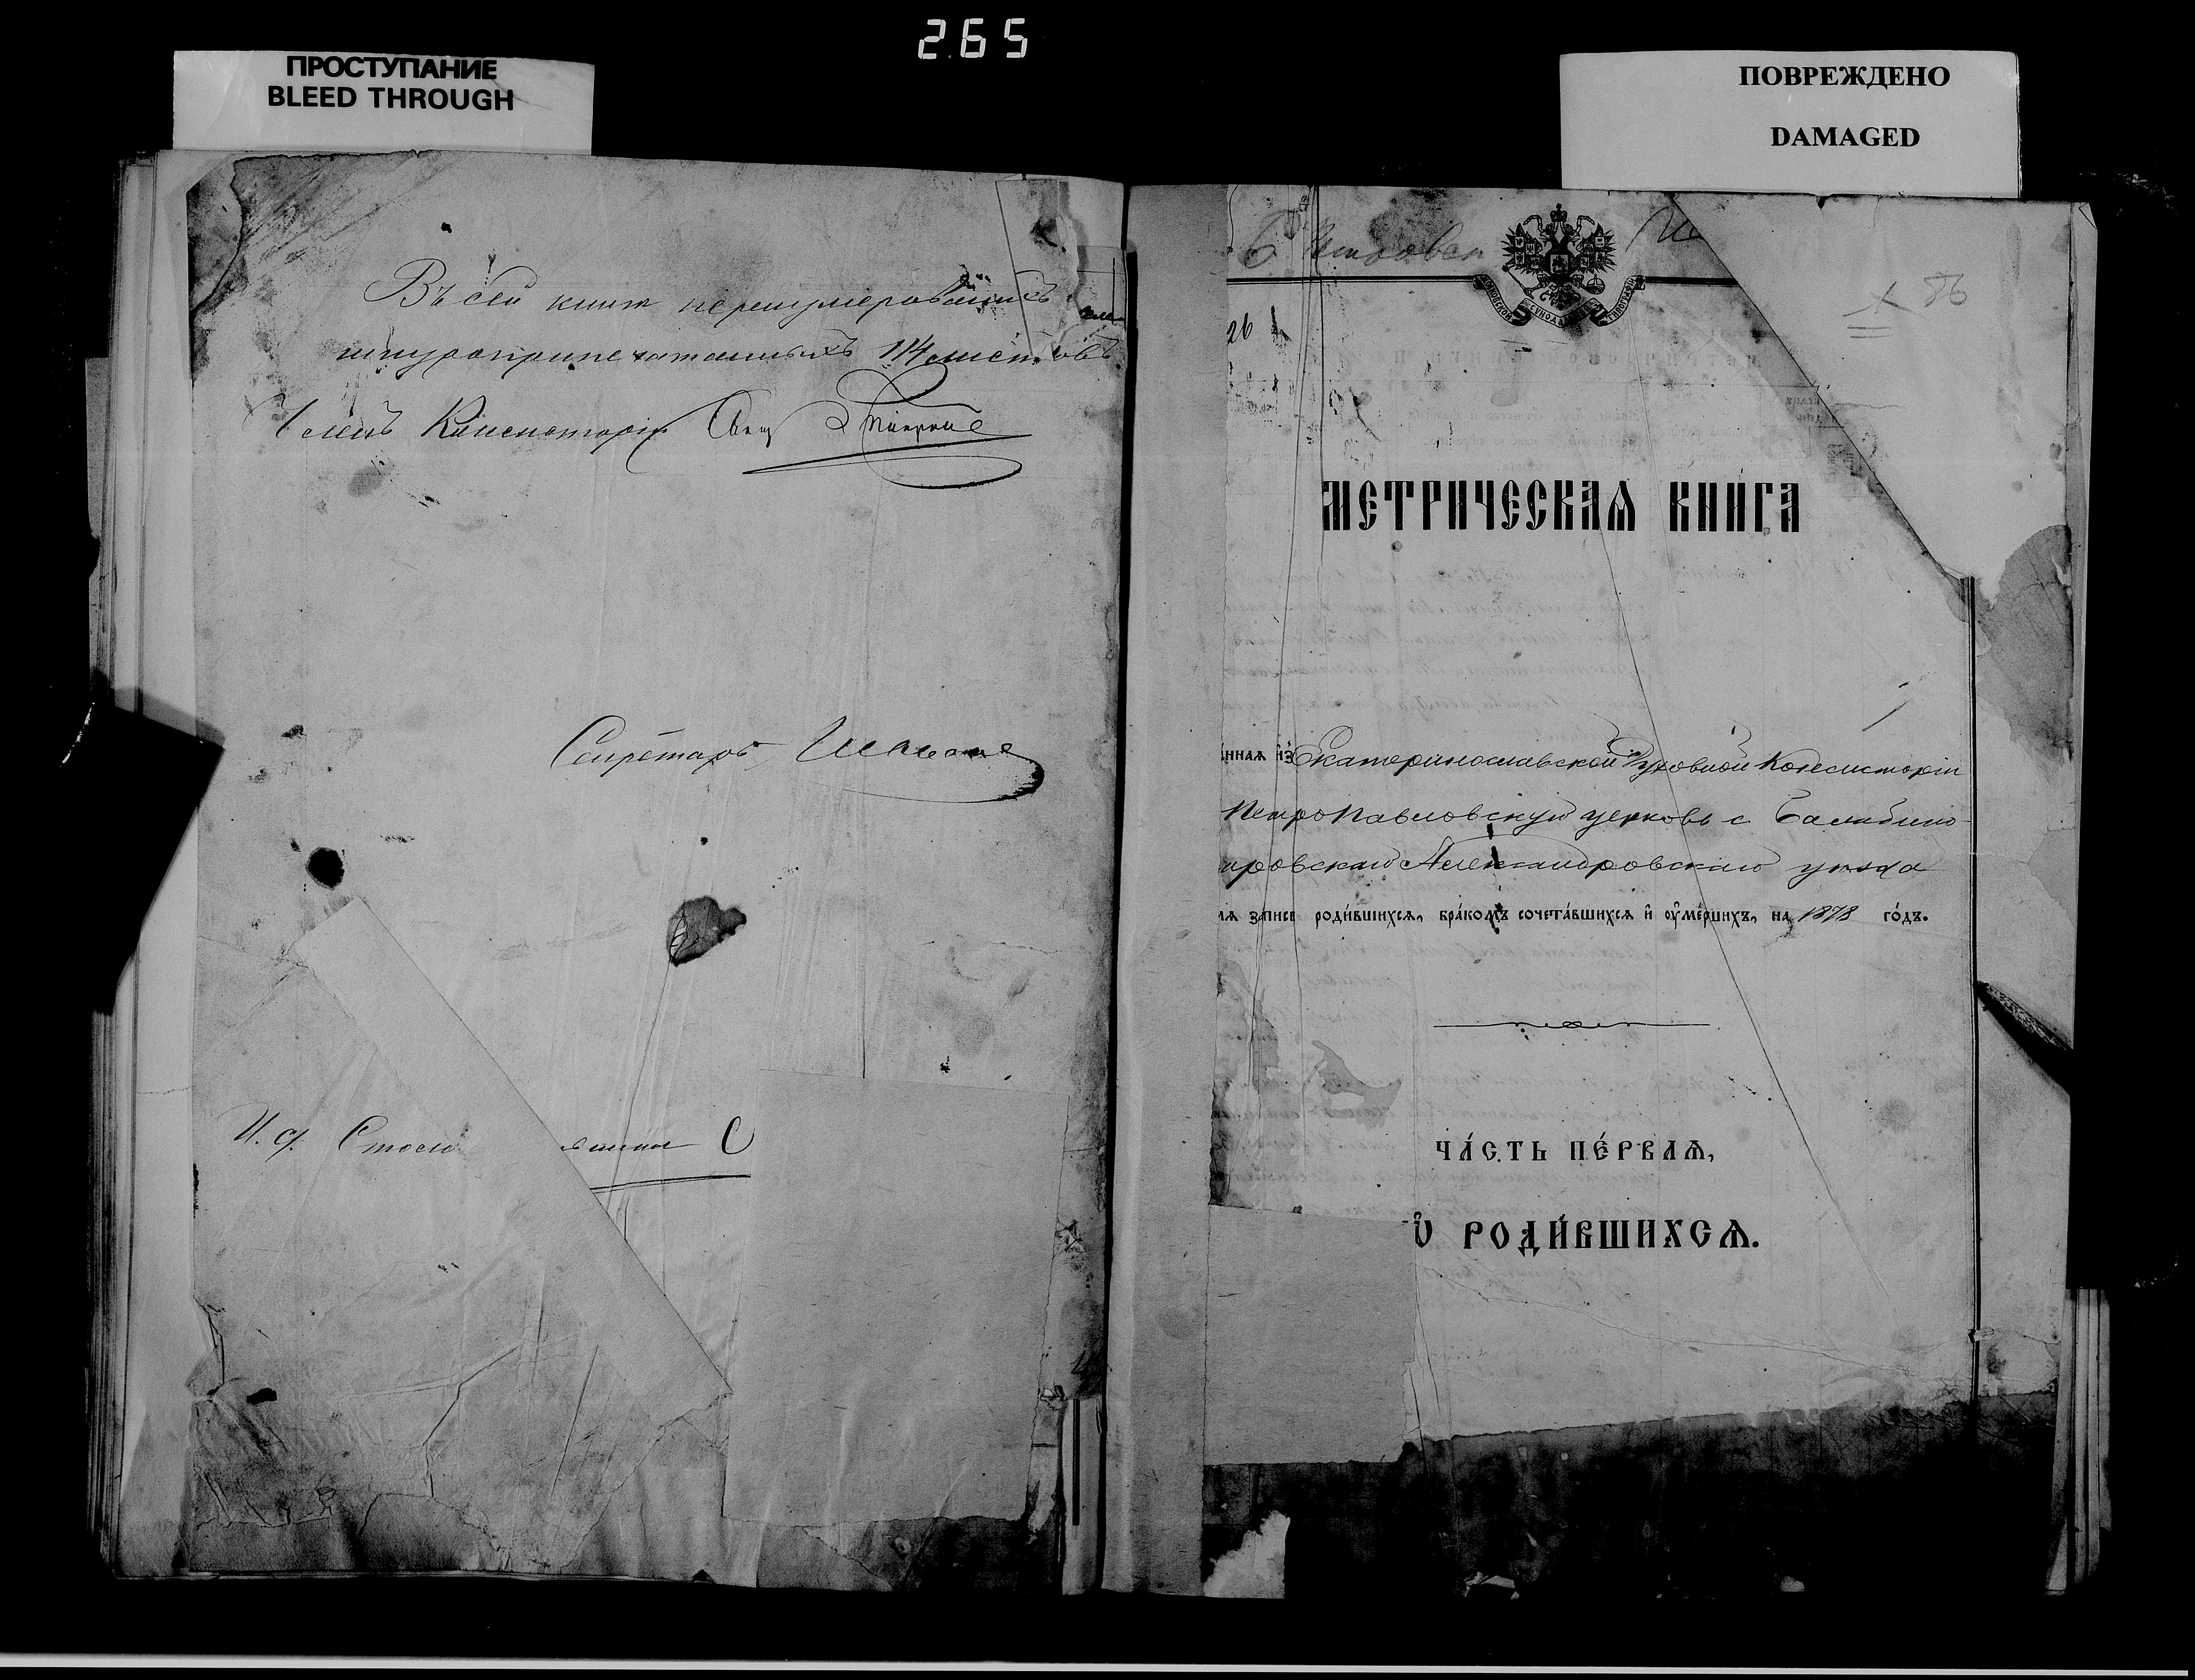 265
ПРОСТУПАНИЕ
BLEED THROUGH
ПОВРЕЖДЕНО
DAMAGED
Въ сей книгѣ перенумерованныхъ
шнуроприпечатанныхъ 114 листовъ
Членъ Консисторіи Свящ
Секретарь
И. д. Столо
86
26
МЕТРИЧЕСКАѦ КНИ́ГА
ннаѧ и҆з̾ Екатеринославской Духовной Консисторіи
Петропавловскую церковь с Балабино-
тровскаго Александровскаго уѣзда
лѧ записи роди́вшихсѧ, бра́комъ сочета́вшихсѧ и҆ оу҆ме́ршихъ, на 1878 го́дъ.
ЧА́СТЬ ПЕ́РВАѦ,
Ѡ҆ РОДИ́ВШИХСѦ.